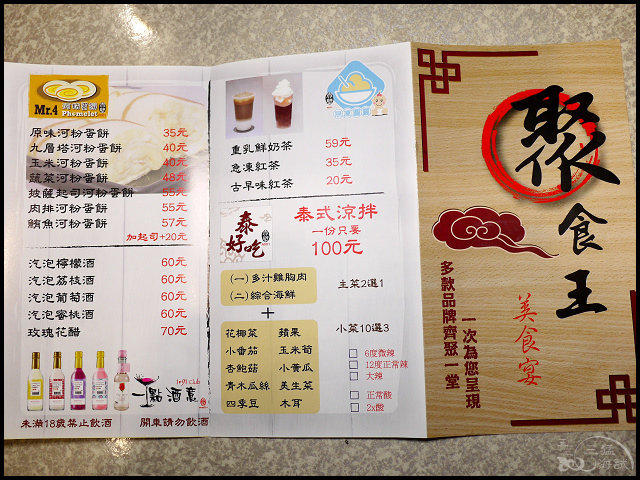 Mr.4
Phomelet
原味河粉蛋餅 35元
九層塔河粉蛋餅 40元
玉米河粉蛋餅 40元
蔬菜河粉蛋餅 48元
披薩起司河粉蛋餅 55元
肉排河粉蛋餅 55元
鮪魚河粉蛋餅 57元
加起司+20元
汽泡檸檬酒 60元
汽泡荔枝酒 60元
汽泡葡萄酒 60元
汽泡蜜桃酒 60元
玫瑰花醋 70元
一點酒意
未滿18歲禁止飲酒 開車請勿飲酒
重乳鮮奶茶 59元
急凍紅茶 35元
古早味紅茶 20元
泰好吃
泰式涼拌
一份只要
100元
(一)多汁雞胸肉
(二)綜合海鮮
主菜2選1
+
花椰菜 蘋果
小番茄 玉米筍
杏鮑菇 小黃瓜
青木瓜絲 美生菜
四季豆 木耳
小菜10選3
6度微辣
12度正常辣
大辣
正常酸
2x酸
聚食王
美食宴
一次為您呈現
多款品牌齊聚一堂